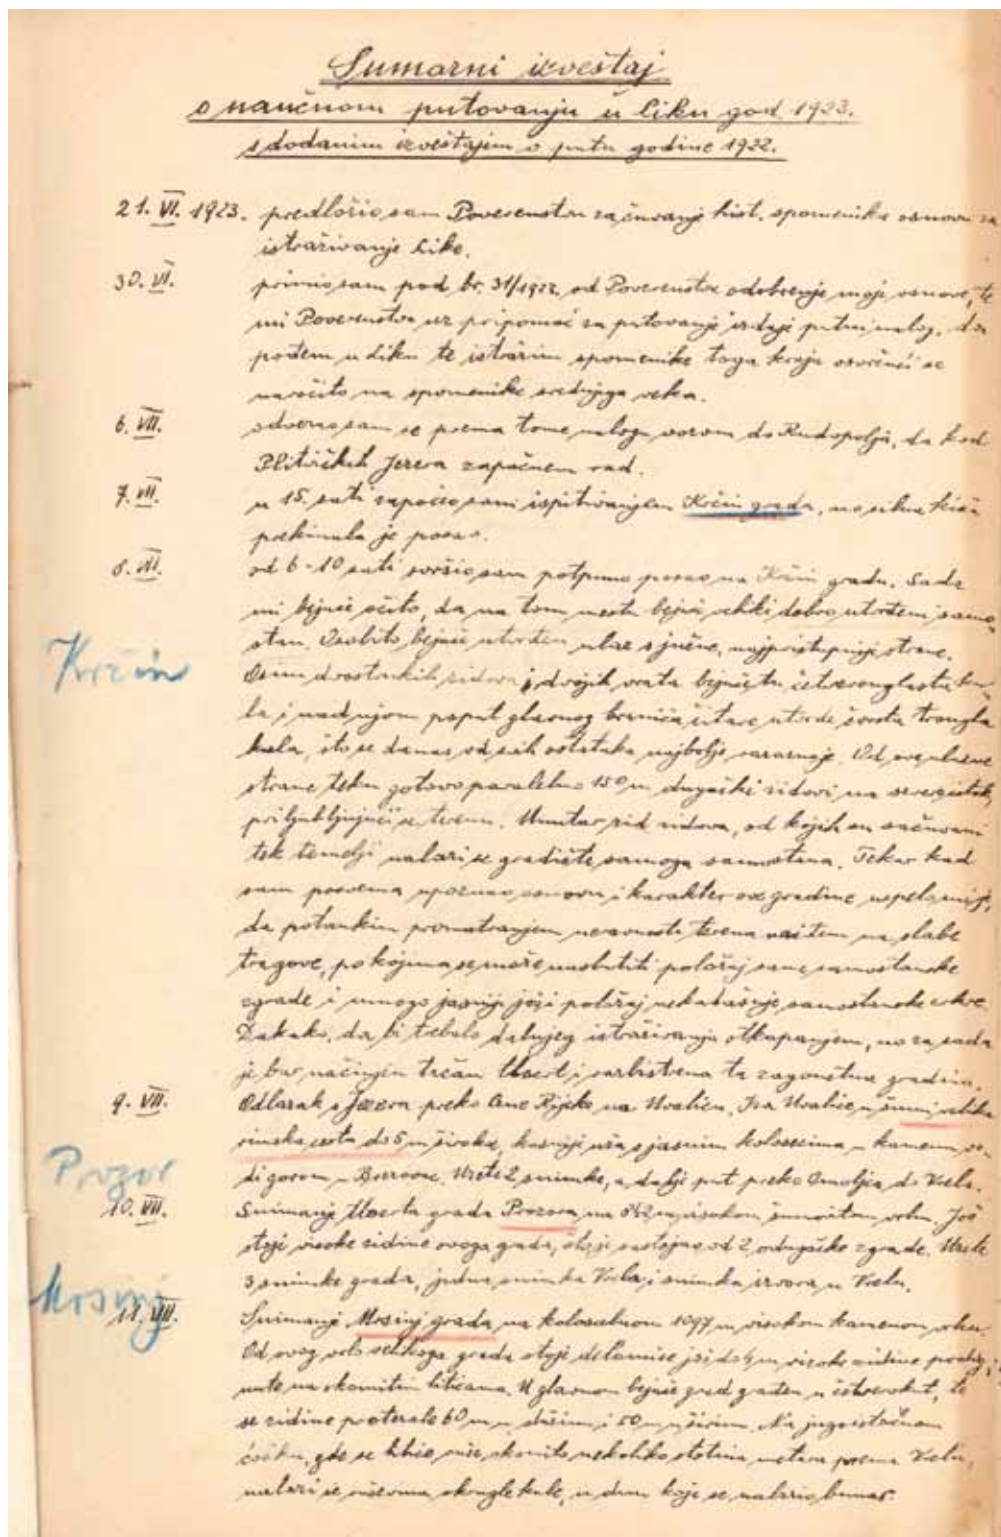 Sumarni izveštaj
o naučnom putovanju u Liku god 1923.
s dodanim izveštajem o putu godine 1922.
21. VI. 1923. predložio sam Povereništvu za čuvanje hist. spomenika osnovu za
istraživanje Like.
30. VI. primio sam pod br. 31/1922. od Povereništva odobrenje moje osnove, te
mi Povereništvo uz pripomoć za putovanje izdaje putni nalog, da
pođem u Liku te istražim spomenike toga kraja osvrćući se
naročito na spomenike srednjega veka.
6. VII. odvezao sam se prema tome nalogu vozom do Rudopolja, da kod
Plitvičkih Jezera započnem rad.
7. VII. u 15. sati započeo sam ispitivanjem Krčin grada, no silna kiša
prekinula je posao.
8. VII. od 6-10 sati svršio sam potpuno posao na Krčin gradu. Sada
mi bejaše očito, da na tom mestu bejaše veliki dobro utvrđeni samo-
stan. Osobito bejaše utvrđen ulaz s južne, najpristupnije strane.
Krčin
Osim dvostrukih zidova i dvojih vrata bejaše tu četverouglasta ku-
la i nad njom poput glavnog branića čitave utvrde čvrsta trougla
kula, što se danas od svih ostataka najbolje razaznaje. Od ove ulazne
strane teku gotovo paralelno 150 m dugački zidovi na severoistok,
priljubljujući se terenu. Unutar zidova, od kojih su sačuvani
tek temelji nalazi se gradište samoga samostana. Tekar kad
sam posvema upoznao osnovu i karakter ove gradine uspelo mi je,
da potankim promatranjem neravnosti terena naiđem na slabe
tragove, po kojima se može naslutiti položaj same samostanske
zgrade i mnogo jasnije još i položaj nekadašnje samostanske crkve.
Dakako, da bi trebalo daljnjeg istraživanja otkapanjem, no za sada
je bar načinjen tačan tlocrt i razbistrena ta zagonetna gradina.
9. VII. Odlazak s Jezera preko Crne Rijeke na Uvalicu. Iza Uvalice u šumi velika
rimska cesta do 5 m široka, kasnije uža s jasnim kolosecima u kamenu vo-
Prozor
di gorom u Brezovac. Uzete 2 snimke, a dalje put preko Omoljca do Vrela.
10. VII. Snimanje tlocrta grada Prozora na 842 m visokom šumovitom vrhu. Još
stoje visoke zidine ovoga grada, što je sastojao od 2, odugačke zgrade. Uzete
3 snimke grada, jedna snimka Vrela i snimka izvora u Vrelu.
Mrsinj
11. VII. Snimanje Mrsinj grada na kolosalnom 1097 m visokom kamenom vrhu.
Od ovog vrlo velikoga grada stoje delomice još do 6 m visoke zidine podig-
nute na okomitim liticama. U glavnom bejaše grad građen u četverokut, te
se zidine protezale 60 m u dužinu i 50 m u širinu. Na jugoistočnom
ćošku, gde se litice ruše okomito nekoliko stotina metara prema Vrelu,
nalazi se ruševina okrugle kule, u dnu koje se nalazio bunar.